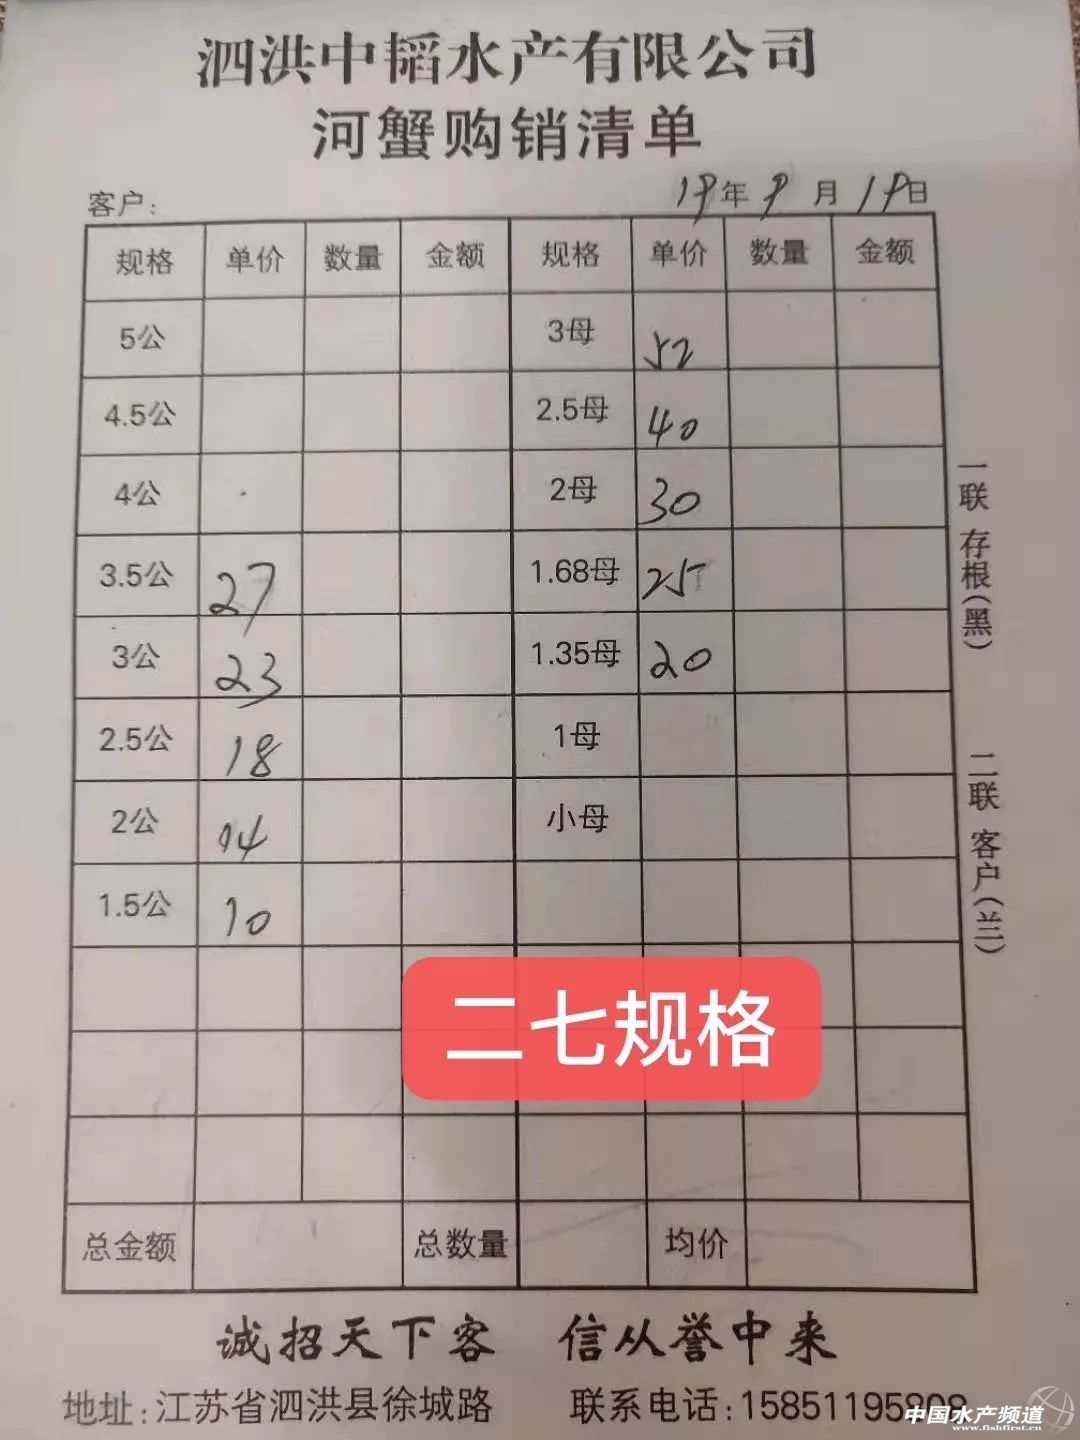 泗洪中韬水产有限公司
河蟹购销清单
客户: 19年9月19日
规格 单价 数量 金额 规格 单价 数量 金额
5公 3母 52
4.5公 2.5母 40
4公 2母 30
3.5公 27 1.68母 25
3公 23 1.35母 20
2.5公 18 1母
2公 14 小母
1.5公 10
二七规格
总金额 总数量 均价
一联 存根(黑) 二联 客户(兰)
诚招天下客 信从誉中来
地址:江苏省泗洪县徐城路 联系电话:15851195808
中国水产频道
www.fishfirst.cn